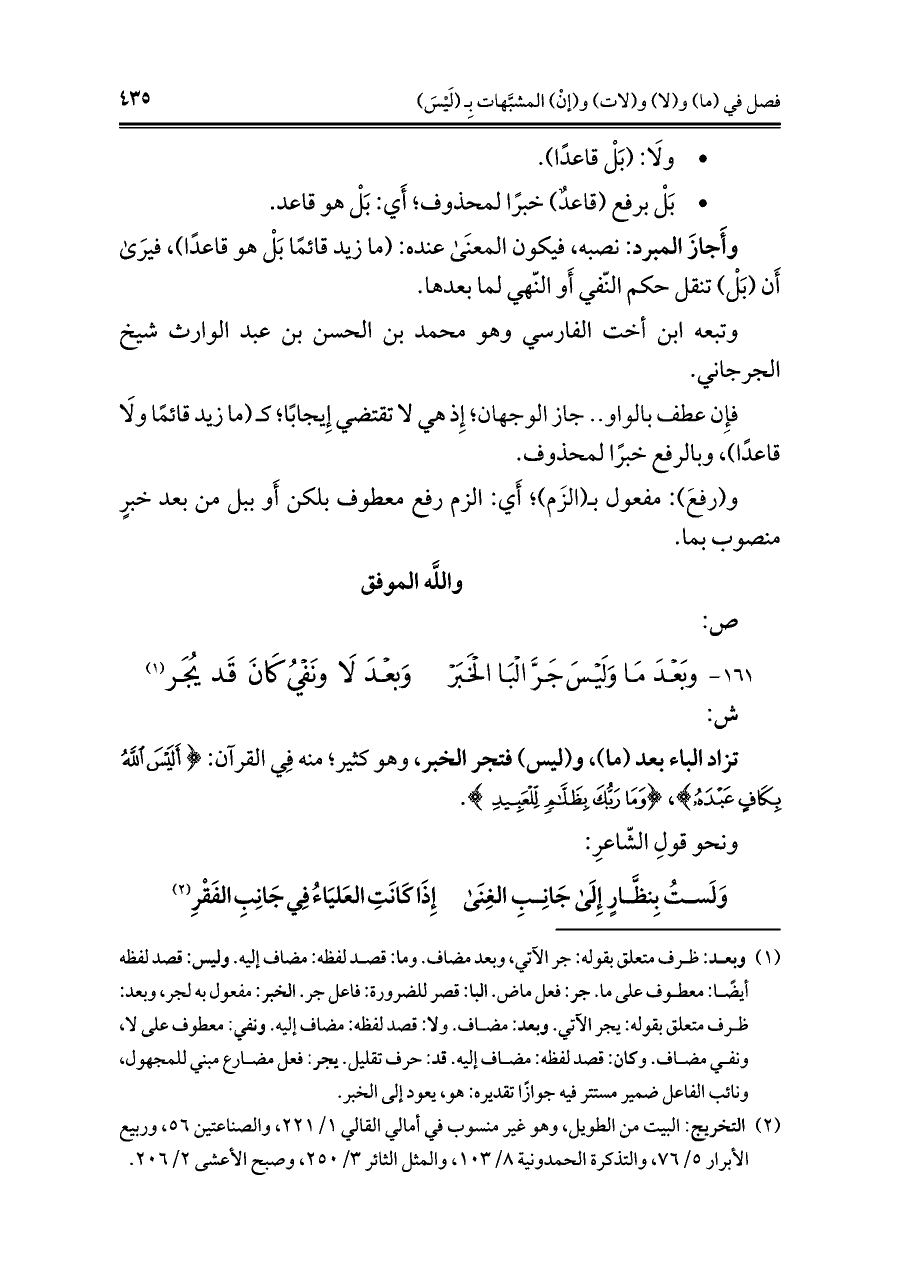 فصل في (ما) و(لا) و(لات) و(إنْ) المشبَّهات بِـ (لَيْسَ) ٤٣٥
• ولَا: (بَلْ قاعدًا).
• بَلْ برفع (قاعدٌ) خبرًا لمحذوف؛ أَي: بَلْ هو قاعد.
وأَجازَ المبرد: نصبه، فيكون المعنَىٰ عنده: (ما زيد قائمًا بَلْ هو قاعدًا)، فيرَىٰ
أَن (بَلْ) تنقل حكم النّفي أَو النّهي لما بعدها.
وتبعه ابن أخت الفارسي وهو محمد بن الحسن بن عبد الوارث شيخ
الجرجاني.
فإِن عطف بالواو.. جاز الوجهان؛ إِذ هي لا تقتضي إِيجابًا؛ كـ (ما زيد قائمًا ولَا
قاعدًا)، وبالرفع خبرًا لمحذوف.
و(رفعَ): مفعول بـ(الزَم)؛ أَي: الزم رفع معطوف بلكن أَو ببل من بعد خبرٍ
منصوب بما.
واللَّه الموفق
ص:
١٦١- وَبَعْدَ مَا وَلَيْسَ جَرَّ الْبَا الْخَبَرْ وَبَعْدَ لَا ونَفْيِ كَانَ قَد يُجَر (١)
ش:
تزاد الباء بعد (ما)، و(ليس) فتجر الخبر، وهو كثير؛ منه فِي القرآن: ﴿أَلَيْسَ ٱللَّهُ
بِكَافٍ عَبْدَهُۥ﴾، ﴿وَمَا رَبُّكَ بِظَلَّٰمٍ لِّلْعَبِيدِ﴾.
ونحو قولِ الشّاعرِ:
وَلَستُ بِنظَّارٍ إِلَىٰ جَانِبِ الغِنَىٰ إِذَا كَانَتِ العَليَاءُ فِي جَانِبِ الفَقْرِ (٢)
(١) وبعد: ظرف متعلق بقوله: جر الآتي، وبعد مضاف. وما: قصد لفظه: مضاف إليه. وليس: قصد لفظه
أيضًا: معطوف على ما. جر: فعل ماض. البا: قصر للضرورة: فاعل جر. الخبر: مفعول به لجر، وبعد:
ظرف متعلق بقوله: يجر الآتي. وبعد: مضاف. ولا: قصد لفظه: مضاف إليه. ونفي: معطوف على لا،
ونفي مضاف. وكان: قصد لفظه: مضاف إليه. قد: حرف تقليل. يجر: فعل مضارع مبني للمجهول،
ونائب الفاعل ضمير مستتر فيه جوازًا تقديره: هو، يعود إلى الخبر.
(٢) التخريج: البيت من الطويل، وهو غير منسوب في أمالي القالي ١/ ٢٢١، والصناعتين ٥٦، وربيع
الأبرار ٥/ ٧٦، والتذكرة الحمدونية ٨/ ١٠٣، والمثل الثائر ٣/ ٢٥٠، وصبح الأعشى ٢/ ٢٠٦.